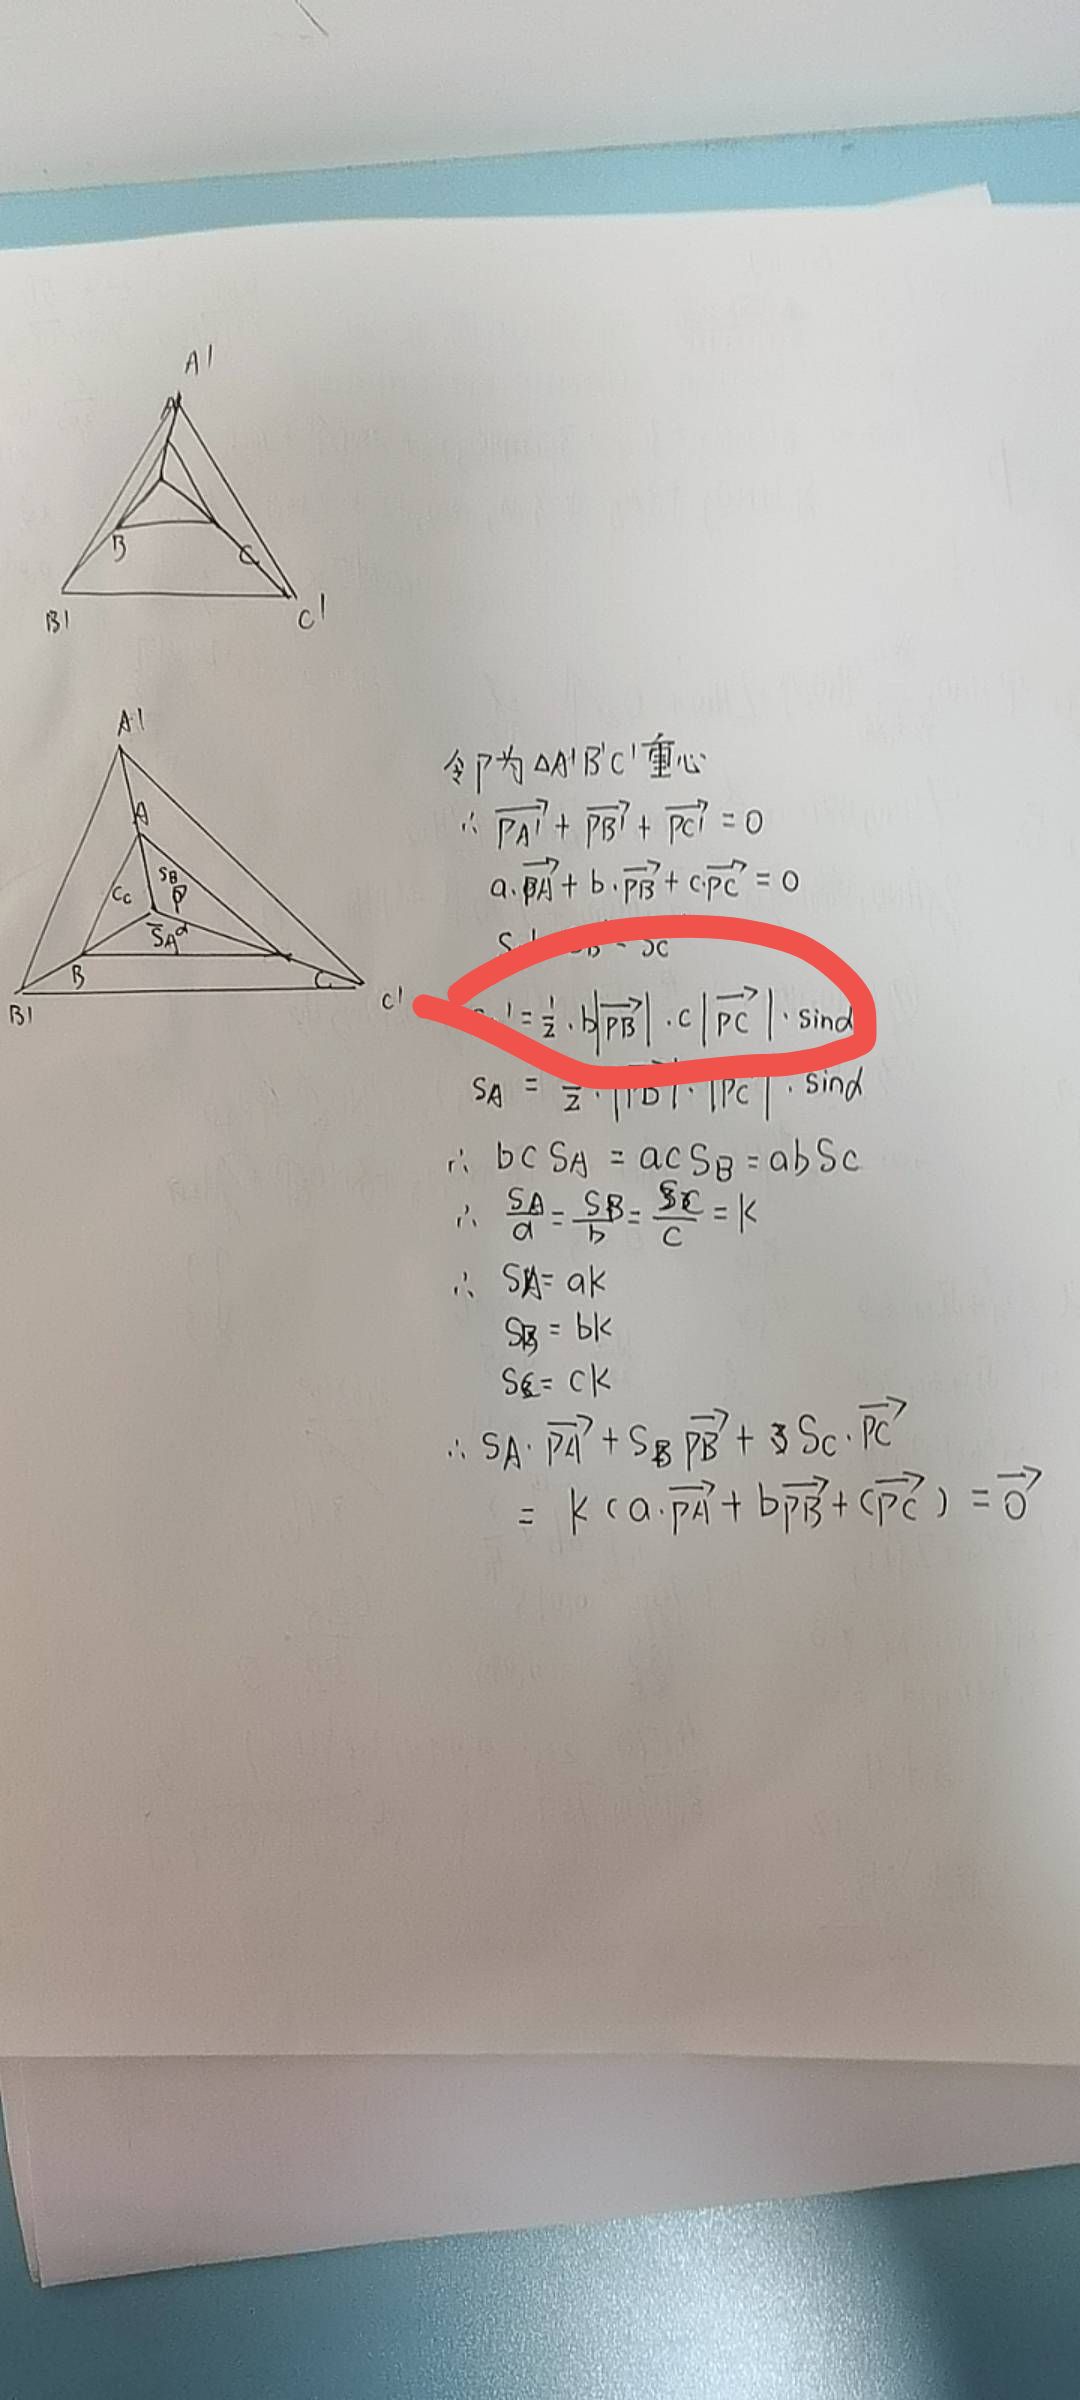 A'
A
B
C
B'
C'
A'
A
SB
Cc
P
SA
α
B
C
B1
C'
令P为△A'B'C'重心
∴ PA' + PB' + PC' = 0
a·PA + b·PB + c·PC = 0
= 1/2 · b|PB| · c|PC| · sinα
SA = 1/2 · |PB| · |PC| · sinα
∴ bcSA = acSB = abSc
∴ SA/a = SB/b = Sc/c = k
∴ SA = ak
SB = bk
Sc = ck
∴ SA · PA + SB PB + Sc · PC
= k(a·PA + bPB + cPC) = 0